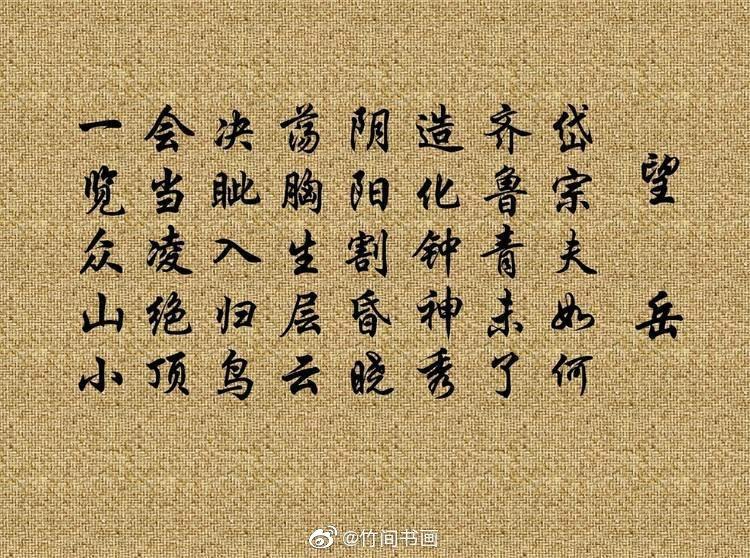 望岳
岱宗夫如何
齐鲁青未了
造化钟神秀
阴阳割昏晓
荡胸生层云
决眦入归鸟
会当凌绝顶
一览众山小
@竹间书画